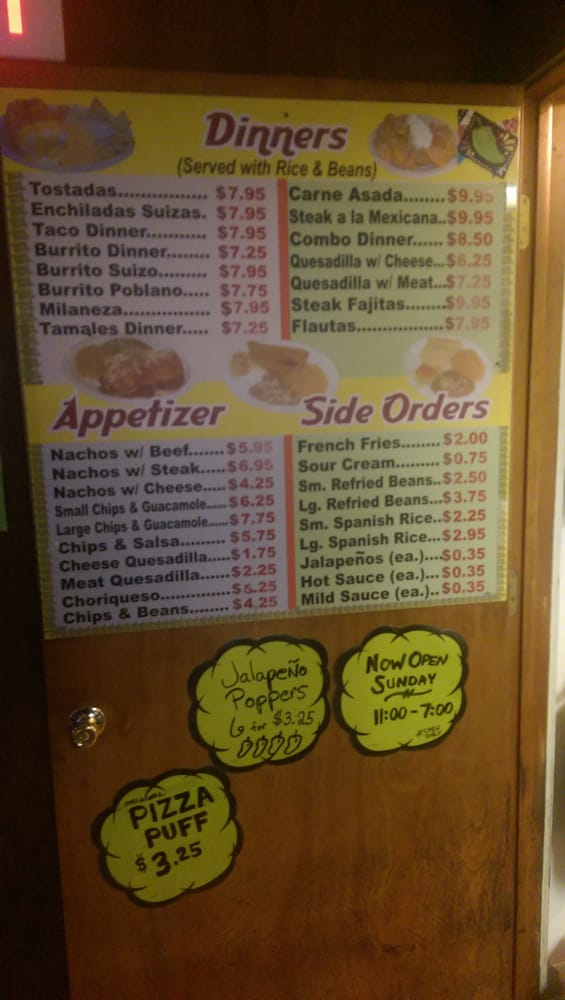 Dinners
(Served with Rice & Beans)
Tostadas................ $7.95
Enchiladas Suizas. $7.95
Taco Dinner........... $7.95
Burrito Dinner........ $7.25
Burrito Suizo......... $7.95
Burrito Poblano..... $7.75
Milaneza................ $7.95
Tamales Dinner..... $7.25
Carne Asada........ $9.95
Steak a la Mexicana.. $9.95
Combo Dinner...... $8.50
Quesadilla w/ Cheese... $6.25
Quesadilla w/ Meat... $7.25
Steak Fajitas........ $9.95
Flautas.................. $7.95
Appetizer
Nachos w/ Beef....... $5.95
Nachos w/ Steak..... $6.95
Nachos w/ Cheese.... $4.25
Small Chips & Guacamole...... $6.25
Large Chips & Guacamole...... $7.75
Chips & Salsa.......... $5.75
Cheese Quesadilla.... $1.75
Meat Quesadilla...... $2.25
Choriqueso.............. $5.25
Chips & Beans......... $4.25
Side Orders
French Fries........ $2.00
Sour Cream......... $0.75
Sm. Refried Beans.. $2.50
Lg. Refried Beans... $3.75
Sm. Spanish Rice.. $2.25
Lg. Spanish Rice... $2.95
Jalapeños (ea.).... $0.35
Hot Sauce (ea.)... $0.35
Mild Sauce (ea.).. $0.35
Jalapeño
Poppers
6 for $3.25
Now Open
Sunday
11:00-7:00
PIZZA
PUFF
$3.25